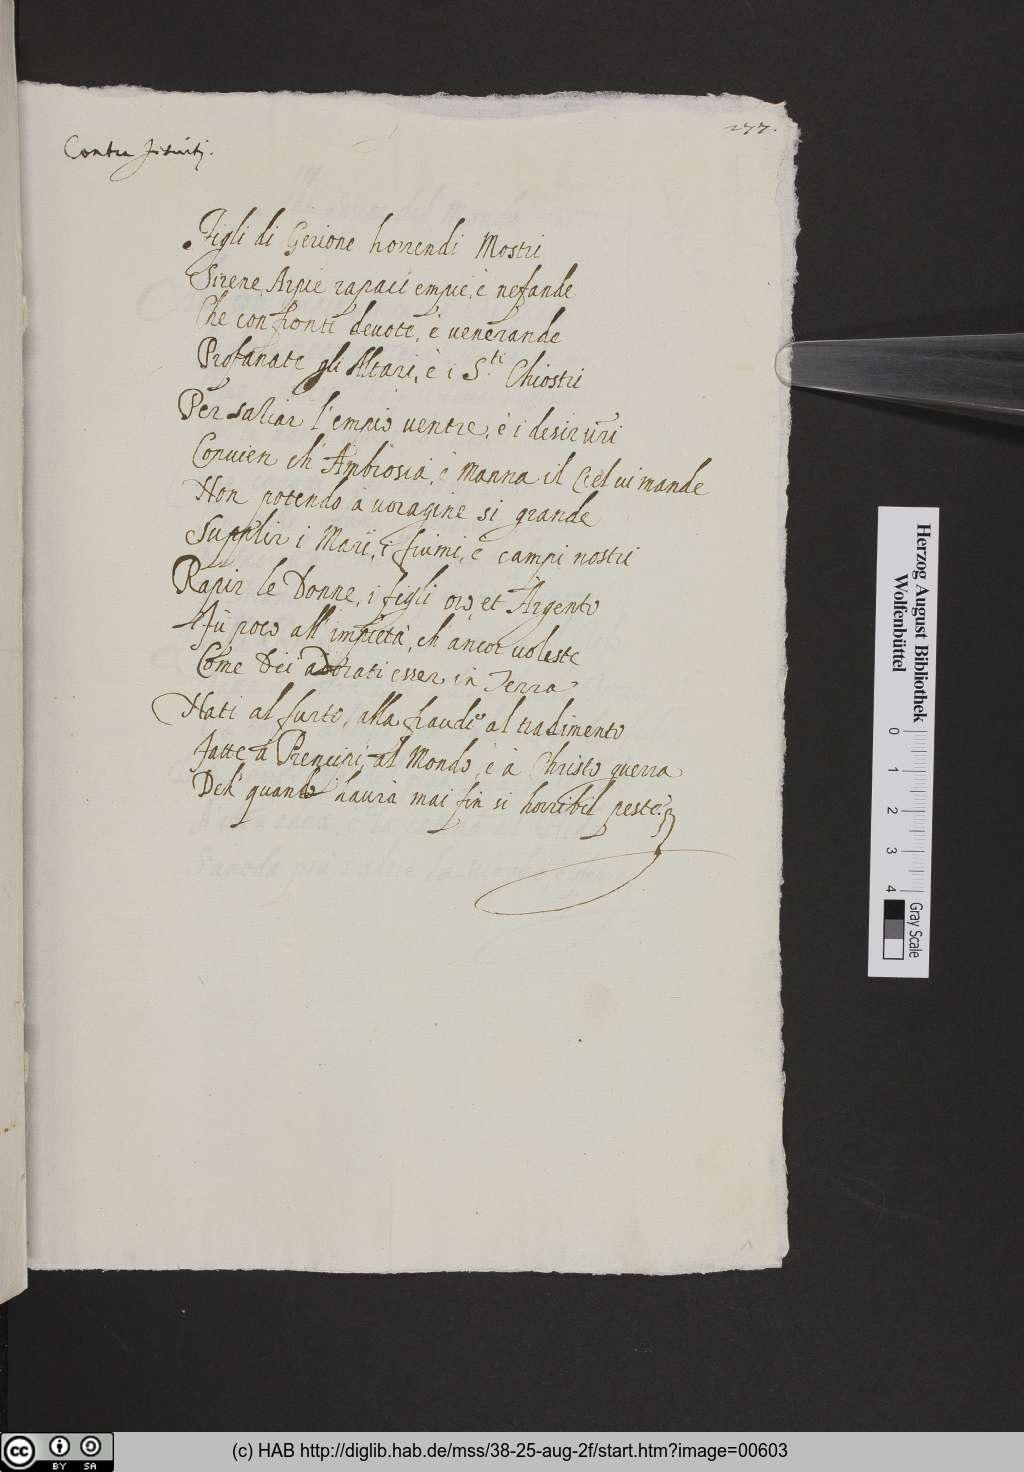 277.
Contra Jesuitj.
Figli di Gerione horrendi Mostri
Sirene, Arpie rapaci empie, è nefande
Che con fronti deuote, è uenerande
Profanate gli Altari, è i S.ti Chiostri
Per satiar l'empio uentre, è i desir uri
Conuien ch' Ambrosia, è Manna il Ciel ui mande
Non potendo à uoragine si grande
Supplir i Mari, i fiumi, e campi nostri
Rapir le Donne, i figli oro et Argento
fù poco all' impietà, ch' ancor uoleste
Come Dei adorati esser in Terra
Nati al furto, alla fraude al tradimento
fatte à Prencipi, al Mondo, è à Christo guerra
Deh quando haurà mai fin si horribil peste
Herzog August Bibliothek
Wolfenbüttel
0 1 2 3 4
Gray Scale
cc BY SA
(c) HAB http://diglib.hab.de/mss/38-25-aug-2f/start.htm?image=00603